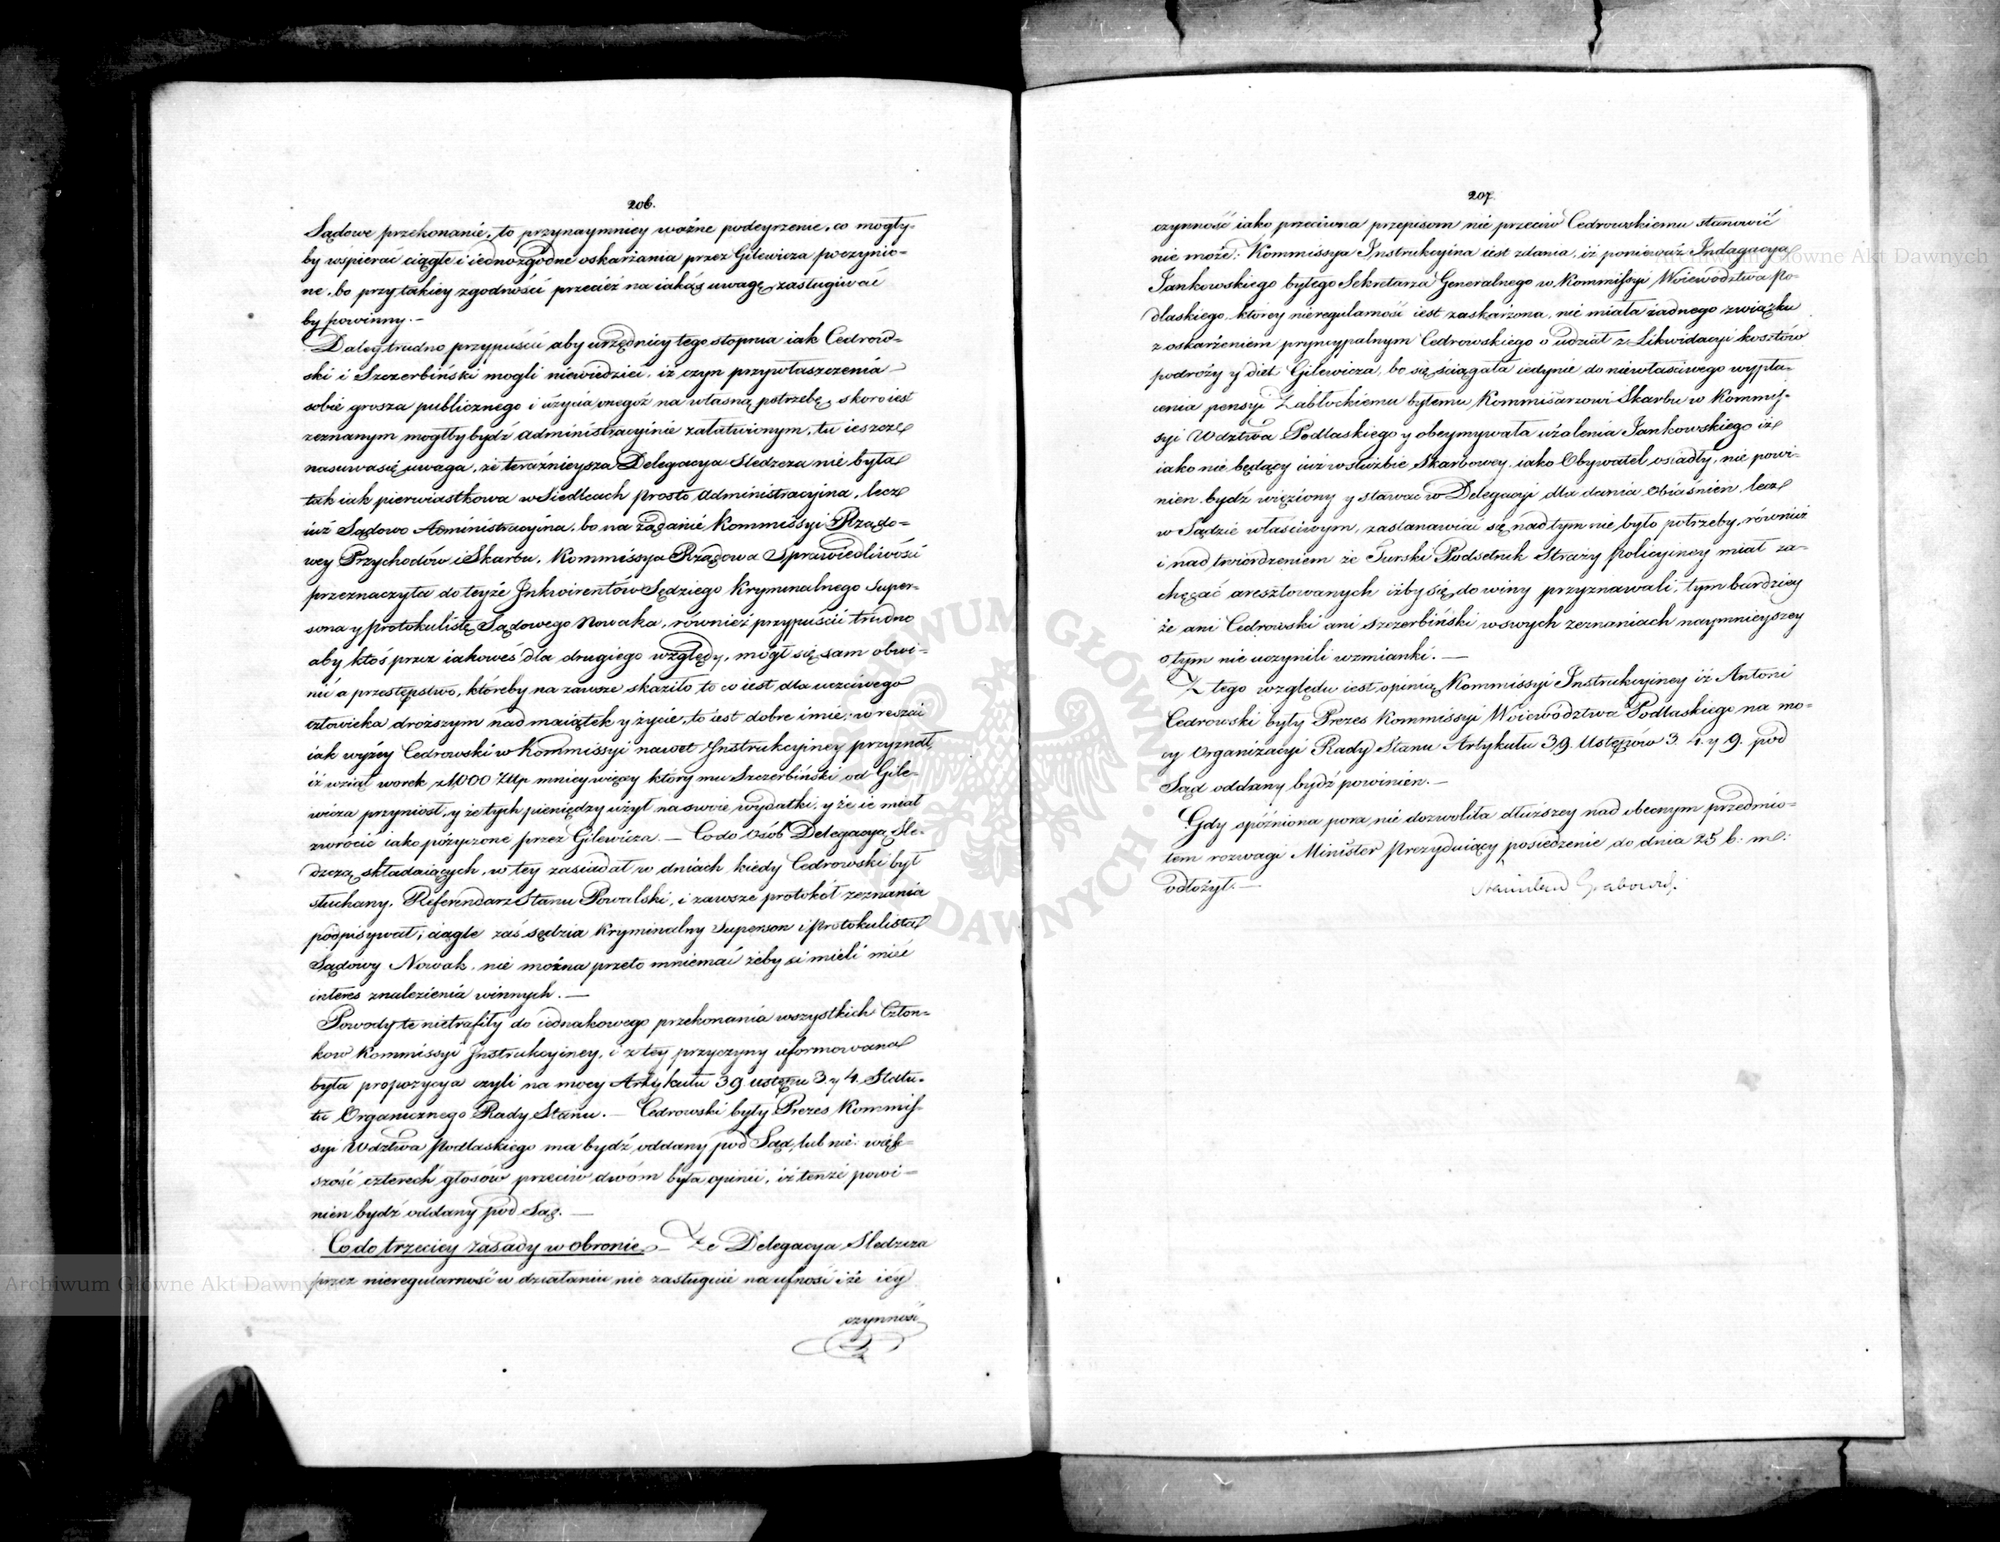 206.
Sądowe przekonanie, to przynaymniey ważne podeyrzenie, co mogły-
by wspierać ciągłe i iednozgodne oskarżania przez Gilewicza poczynio-
ne, bo przy takiey zgodności przecież na iakąś uwagę zasługiwać
by powinny. –
Daley trudno przypuścić aby urzędnicy tego stopnia iak Cedrow-
ski i Szczerbiński mogli niewiedzieć, iż czyn przywłaszczenia
sobie grosza publicznego i użycia onegoż na własną potrzebę, skoro iest
zeznanym mógłby bydź administracyinie załatwionym, tu ieszcze
nasuwa się uwaga, że teraźnieysza Delegacya Sledcza nie była
tak iak pierwiastkowa w Siedlcach prosto administracyina, lecz
iuż Sądowo Administracyina, bo na żądanie Kommissyi Rządo-
wey Przychodów i Skarbu, Kommissya Rządowa Sprawiedliwości
przeznaczyła do teyże Inkwirentów Sędziego Kryminalnego Super-
sona y protokulistę Sądowego Nowaka, również przypuścić trudno
aby ktoś przez iakowes dla drugiego względy, mógł się sam obwi-
nić a przestępstwo, któreby na zawsze skaziło to co iest dla uczciwego
człowieka droższym nad maiątek y życie, to iest dobre imie; wreszcie
iak wyżey Cedrowski w Kommissyi nawet Instrukcyiney przyznał,
iż wziął worek z 1000 Złp mniey więcey który mu Szczerbiński od Gile-
wicza przyniosł, y że tych pieniędzy użył na swoie wydatki, y że ie miał
zwrócić iako pożyczone przez Gilewicza. – Co do osób Delegacyą Sle-
dczą składaiących, w tey zasiadał w dniach kiedy Cedrowski był
słuchany, Referendarz Stanu Powalski, i zawsze protokół zeznania
podpisywał, ciągle zaś sędzia Kryminalny Superson i Protokulista
Sądowy Nowak, nie można przeto mniemać żeby ci mieli mieć
interes znalezienia winnych. –
Powody te nietrafiły do iednakowego przekonania wszystkich Człon-
ków Kommissyi Instrukcyiney, i z tey przyczyny uformowana
była propozycya czyli na mocy Artykułu 39 ustępu 3. y 4. Statu-
tu Organicznego Rady Stanu. – Cedrowski były Prezes Kommis-
syi Wdztwa Podlaskiego ma bydź oddany pod Sąd, lub nie: więk-
szość czterech głosów przeciw dwóm była opinii, iż tenże powi-
nien bydź oddany pod Sąd. –
Co do trzeciey zasady w obronie – Że Delegacya Sledcza
przez nieregularność w działaniu nie zasługuie na ufność i że iey
czynność
207.
czynność iako przeciwna przepisom nic przeciw Cedrowskiemu stanowić
nie może: Kommissya Instrukcyina iest zdania, iż ponieważ Indagacya
Jankowskiego byłego Sekretarza Generalnego w Kommissyi Woiewództwa Po-
dlaskiego, którey nieregularność iest zaskarżona, nie miała żadnego związku
z oskarżeniem pryncypalnym Cedrowskiego o udział z Likwidacyi kosztów
podróży y diet Gilewicza, bo się ściągała iedynie do niewłaściwego wypła-
cenia pensyi Zabłockiemu byłemu Kommisarzowi Skarbu w Kommis-
syi Wdztwa Podlaskiego y obeymywała użalenia Jankowskiego iż
iako nie będący iuż w służbie Skarbowey, iako Obywatel osiadły, nie powi-
nien bydź więziony y stawać w Delegacyi dla dania obiaśnień, lecz
w Sądzie właściwym, zastanawiać się nad tym nie było potrzeby, również
i nad twierdzeniem że Turski Podsetnik Straży policyiney miał za-
chęcać aresztowanych iżby się do winy przyznawali, tym bardziey
że ani Cedrowski ani Szczerbiński w swych zeznaniach naymnieyszey
o tym nie uczynili wzmianki. –
Z tego względu iest opinią Kommissyi Instrukcyiney iż Antoni
Cedrowski były Prezes Kommissyi Woiewództwa Podlaskiego na mo-
cy Organizacyi Rady Stanu Artykułu 39. Ustępów 3. 4. y 9. pod
Sąd oddany bydź powinien. –
Gdy spóźniona pora nie dozwoliła dłuższey nad obecnym przedmio-
tem rozwagi Minister Prezyduiący posiedzenie do dnia 25 b: m:
odłożył. –
Stanisław Grabowski
Archiwum Główne Akt Dawnych
Archiwum Główne Akt Dawnych
ARCHIWUM GŁÓWNE AKT DAWNYCH